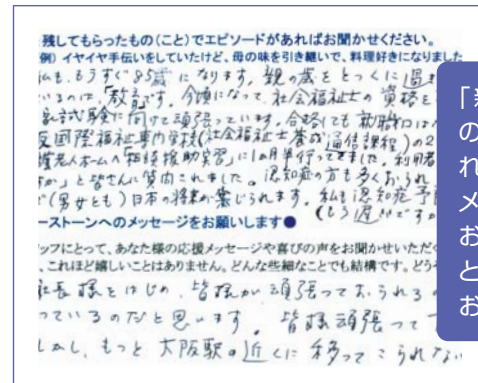 残してもらったもの(こと)でエピソードがあればお聞かせください。
例) イヤイヤ手伝いをしていたけど、母の味を引き継いで、料理好きになりました
私も、もうすぐ85歳になります。親の歳をとっくに過ぎ
いるのは、「教育」です。今頃になって、社会福祉士の資格を
試験に向けて頑張っています。合格しても就職口は
国際福祉専門学校(社会福祉士養成通信課程)の2
護老人ホームへ「相談援助実習」に1ヵ月半行ってきました。利用者
か」と皆さんに質問されました。認知症の方も多くおられ
(男女とも)日本の将来が案じられます。私も認知症予
(もう遅いですか
ーストーンへのメッセージをお願いします●
ッフにとって、あなた様の応援メッセージや喜びの声をお聞かせいただく
、これほど嬉しいことはありません。どんな些細なことでも結構です。どうぞ
社長様をはじめ、皆様が頑張っておられる
っているのだと思います。皆様頑張って
しかし、もっと大阪駅の近くに移ってこられない
「親
の
れ
メ
お
と
お